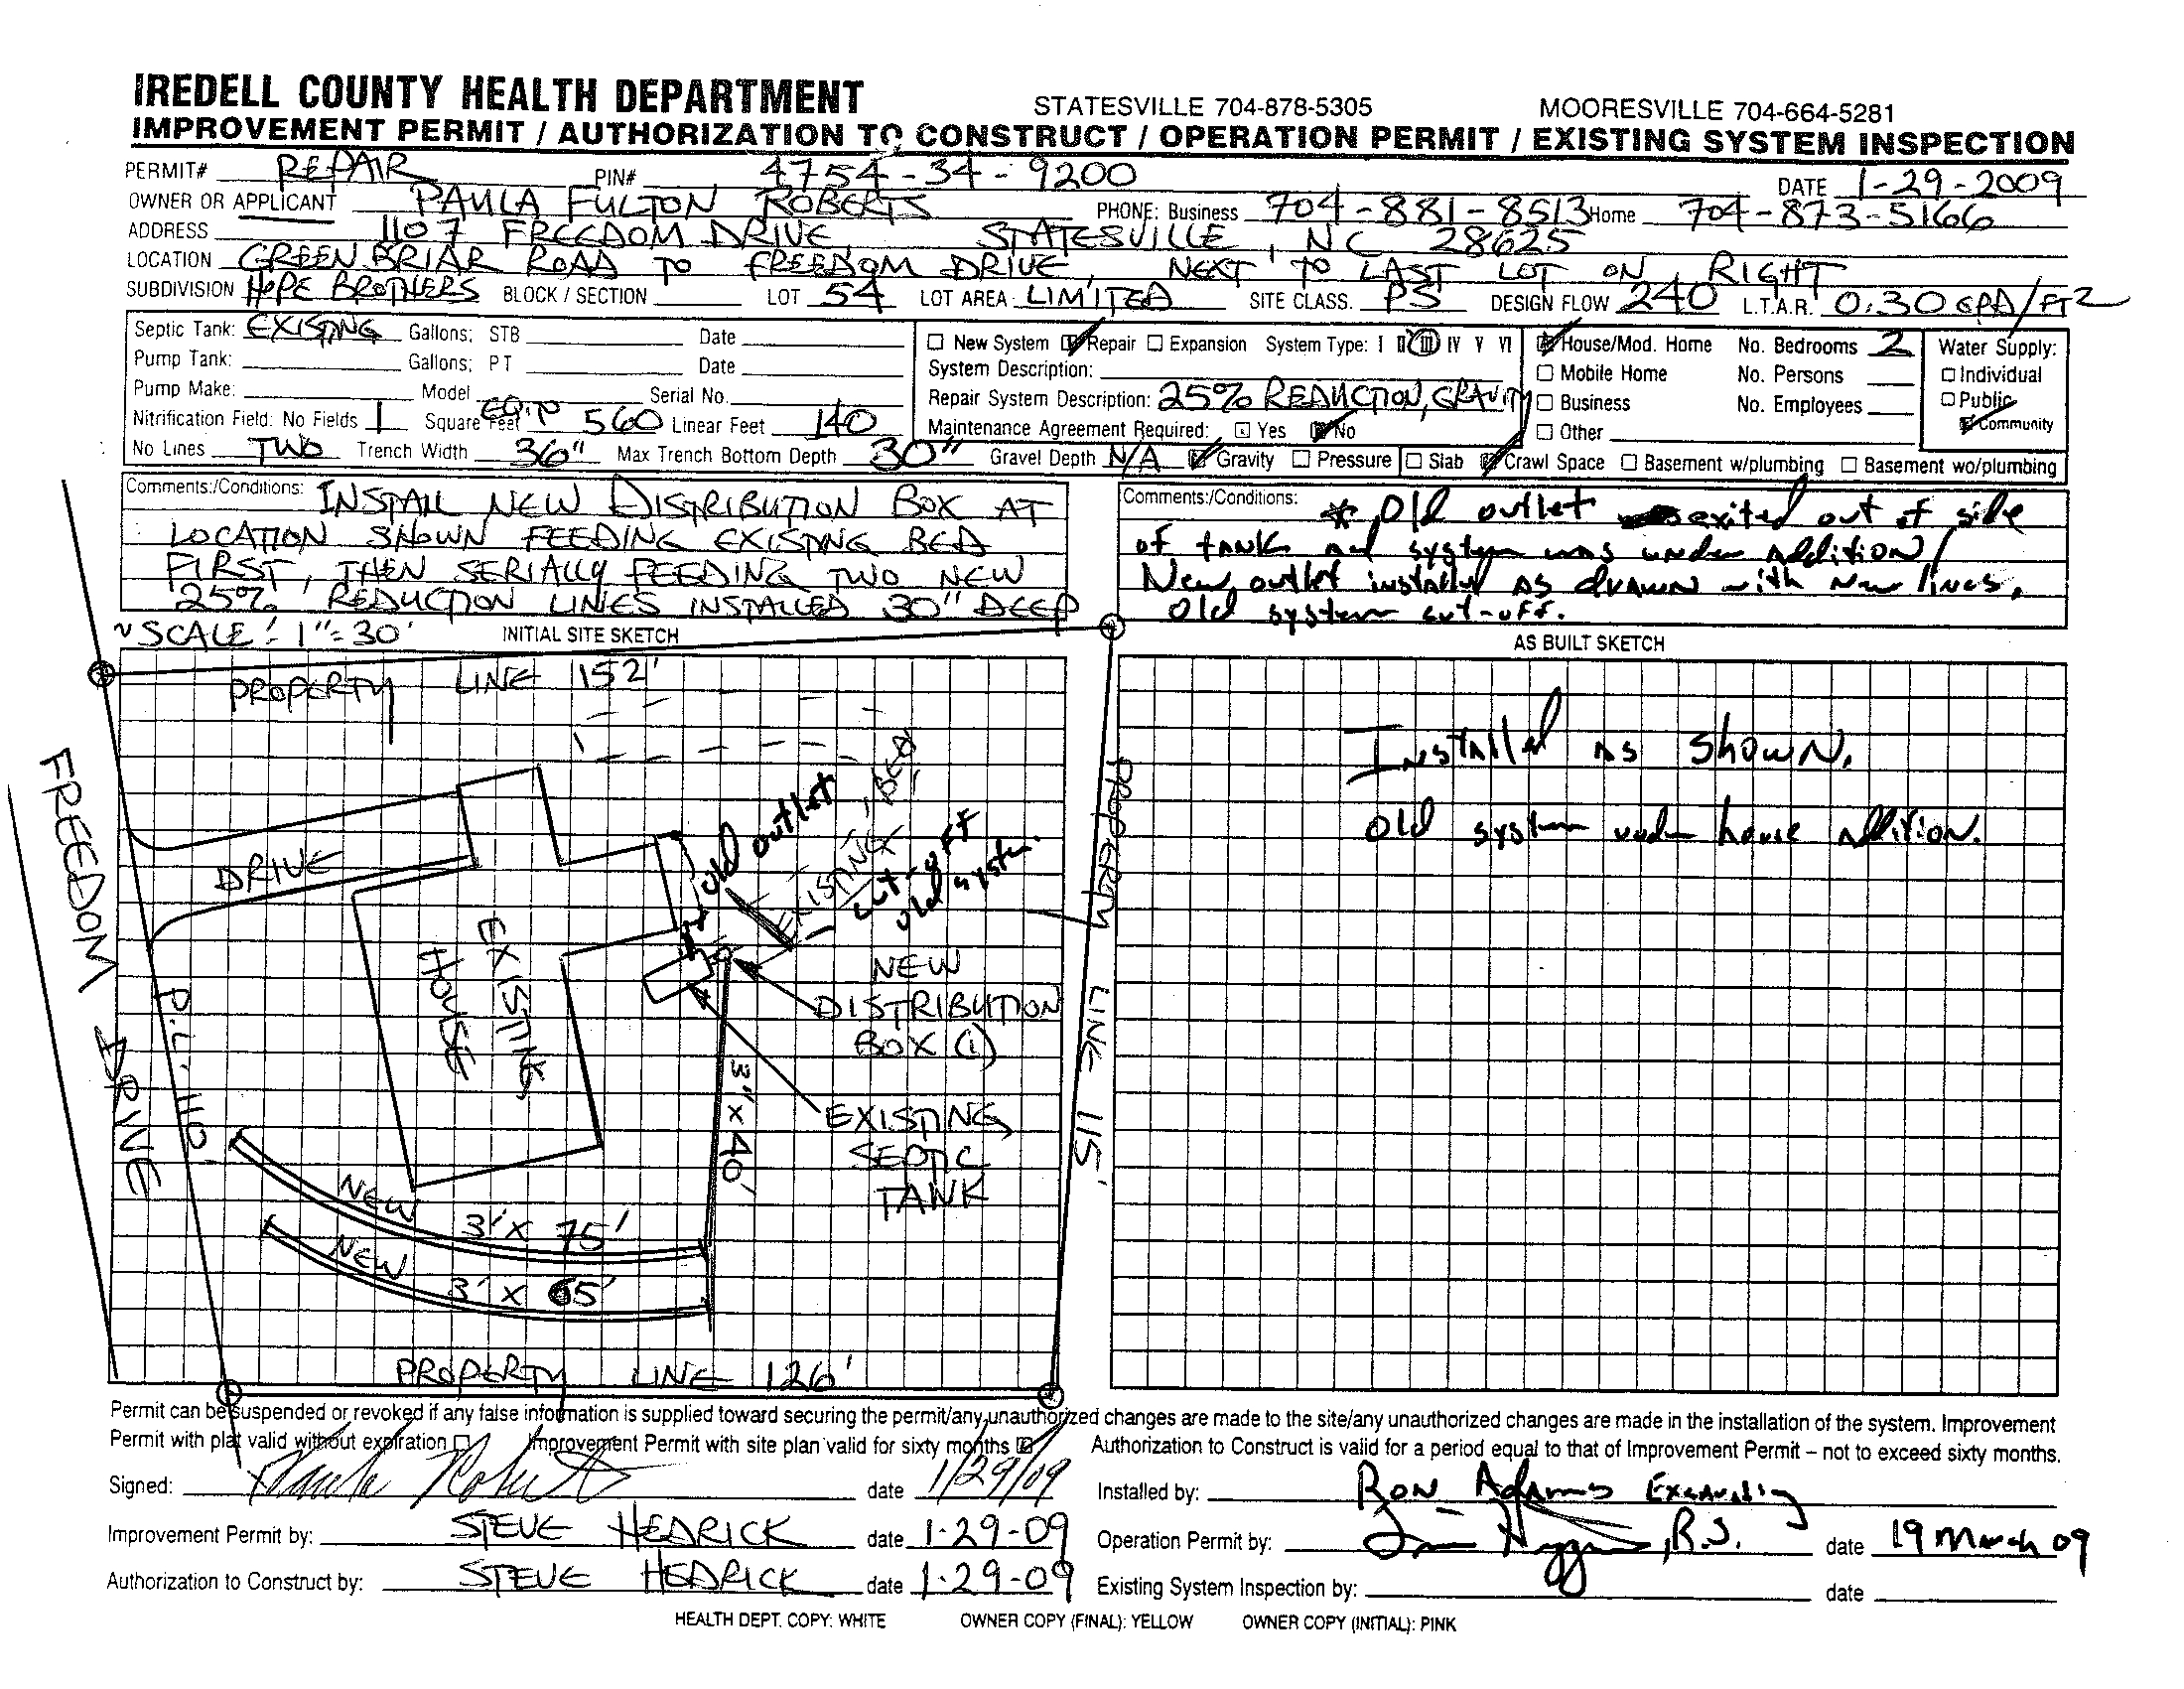 IREDELL COUNTY HEALTH DEPARTMENT STATESVILLE 704-878-5305 MOORESVILLE 704-664-5281
IMPROVEMENT PERMIT / AUTHORIZATION TO CONSTRUCT / OPERATION PERMIT / EXISTING SYSTEM INSPECTION
PERMIT# REPAIR PIN# 4754-34-9200 DATE 1-29-2009
OWNER OR APPLICANT PAULA FULTON ROBERTS PHONE: Business 704-881-8513 Home 704-873-5166
ADDRESS 1107 FREEDOM DRIVE, STATESVILLE, NC 28625
LOCATION GREEN BRIAR ROAD TO FREEDOM DRIVE, NEXT TO LAST LOT ON RIGHT
SUBDIVISION HOPE BROTHERS BLOCK / SECTION LOT 54 LOT AREA LIMITED SITE CLASS. PS DESIGN FLOW 240 L.T.A.R. 0.30 GPD/FT2
Septic Tank: EXISTING Gallons; STB Date
Pump Tank: Gallons; PT Date
Pump Make: Model Serial No.
Nitrification Field: No Fields 1 Square Feet 560 Linear Feet 140
No Lines TWO Trench Width 36" Max Trench Bottom Depth 30" Gravel Depth N/A Gravity Pressure Slab Crawl Space Basement w/plumbing Basement wo/plumbing
New System Repair Expansion System Type: I II III IV V VI
System Description:
Repair System Description: 25% REDUCTION, GRAVITY
Maintenance Agreement Required: Yes No
House/Mod. Home No. Bedrooms 2
Mobile Home No. Persons
Business No. Employees
Other
Water Supply:
Individual
Public
Community
Comments:/Conditions: INSTALL NEW DISTRIBUTION BOX AT
LOCATION SHOWN FEEDING EXISTING BED
FIRST, THEN SERIALLY FEEDING TWO NEW
25% REDUCTION LINES INSTALLED 30" DEEP
Comments:/Conditions: * Old outlet exited out of side
of tank and system was under addition/
New outlet installed as drawn with new lines,
old system cut-off.
~ SCALE: 1"=30' INITIAL SITE SKETCH
AS BUILT SKETCH
PROPERTY LINE 152'
FREEDOM DRIVE
P.L. 110'
DRIVE
EXISTING
HOUSE
old outlet
EXISTING BED
cut-off
old system.
NEW
DISTRIBUTION
BOX (1)
3" x 40'
EXISTING
SEPTIC
TANK
PROPERTY LINE 115'
NEW 3' x 75'
NEW 3' x 65'
PROPERTY LINE 126'
Installed as shown.
Old system under house addition.
Permit can be suspended or revoked if any false information is supplied toward securing the permit/any unauthorized changes are made to the site/any unauthorized changes are made in the installation of the system. Improvement
Permit with plat valid without expiration Improvement Permit with site plan valid for sixty months Authorization to Construct is valid for a period equal to that of Improvement Permit – not to exceed sixty months.
Signed: Paula Roberts date 1/29/09 Installed by: Ron Adams Excavating
Improvement Permit by: STEVE HEDRICK date 1-29-09 Operation Permit by: , R.S. date 19 March 09
Authorization to Construct by: STEVE HEDRICK date 1-29-09 Existing System Inspection by: date
HEALTH DEPT. COPY: WHITE OWNER COPY (FINAL): YELLOW OWNER COPY (INITIAL): PINK